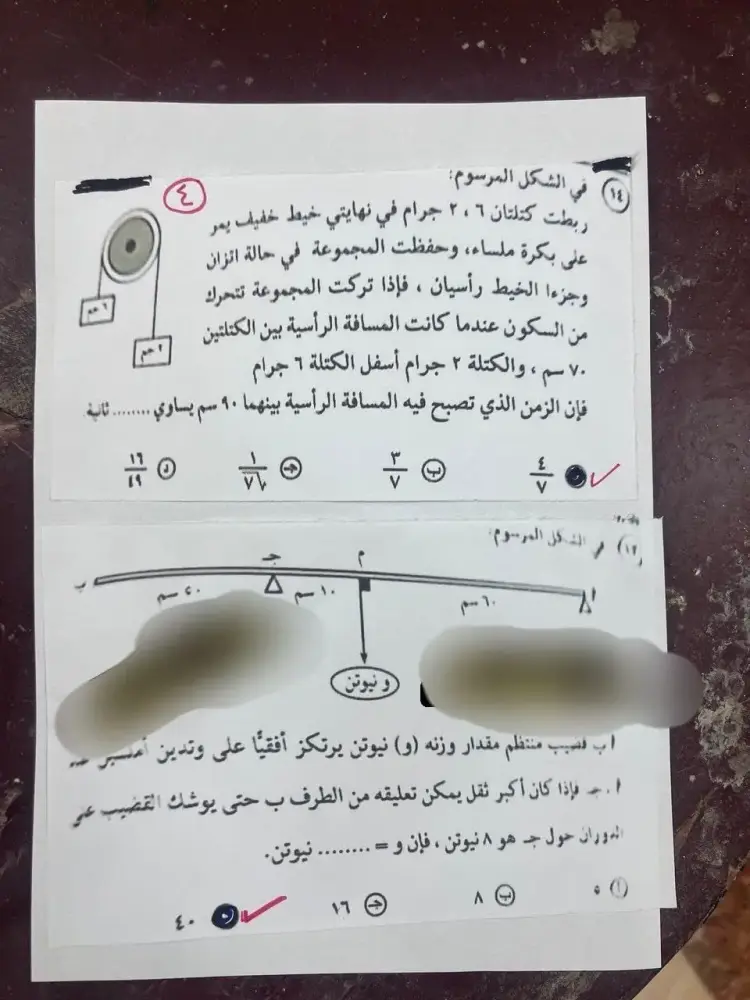 ١٤ في الشكل المرسوم:
٤
ربطت كتلتان ٦ ، ٢ جرام في نهايتي خيط خفيف يمر
على بكرة ملساء، وحفظت المجموعة في حالة اتزان
وجزءا الخيط رأسيان ، فإذا تركت المجموعة تتحرك
من السكون عندما كانت المسافة الرأسية بين الكتلتين
٧٠ سم ، والكتلة ٢ جرام أسفل الكتلة ٦ جرام
فإن الزمن الذي تصبح فيه المسافة الرأسية بينهما ٩٠ سم يساوي ........ ثانية
٦ جم
٢ جم
٤/٧ ب ٣/٧ ج ١/√٧ د ١٦/٤٩
(١٢) في الشكل المرسوم:
ب جـ م أ
٤٠ سم ١٠ سم ٦٠ سم
و نيوتن
أ ب قضيب منتظم مقدار وزنه (و) نيوتن يرتكز أفقيًا على وتدين
أ ، جـ فإذا كان أكبر ثقل يمكن تعليقه من الطرف ب حتى يوشك القضيب على
الدوران حول جـ هو ٨ نيوتن ، فإن و = ........ نيوتن.
أ ٥ ب ٨ ج ١٦ د ٤٠